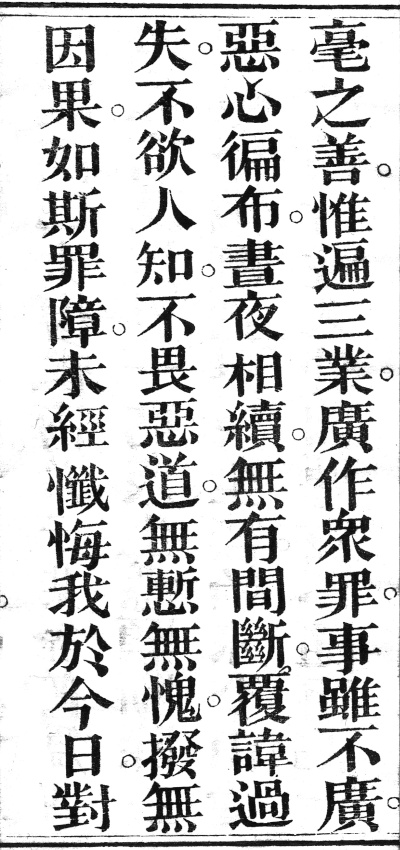 毫之善。惟遍三業。廣作衆罪。事雖不廣。
惡心徧布。晝夜相續。無有間斷。覆諱過
失。不欲人知。不畏惡道。無慙無愧。撥無
因果。如斯罪障。未經懺悔我於今日。對